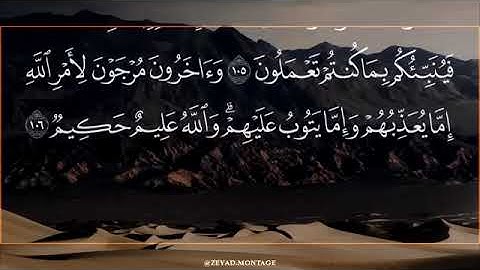 فَيُنَبِّئُكُم بِمَا كُنتُمْ تَعْمَلُونَ ١٠٥ وَءَاخَرُونَ مُرْجَوْنَ لِأَمْرِ ٱللَّهِ
إِمَّا يُعَذِّبُهُمْ وَإِمَّا يَتُوبُ عَلَيْهِمْ ۗ وَٱللَّهُ عَلِيمٌ حَكِيمٌ ١٠٦
@ZEYAD.MONTAGE